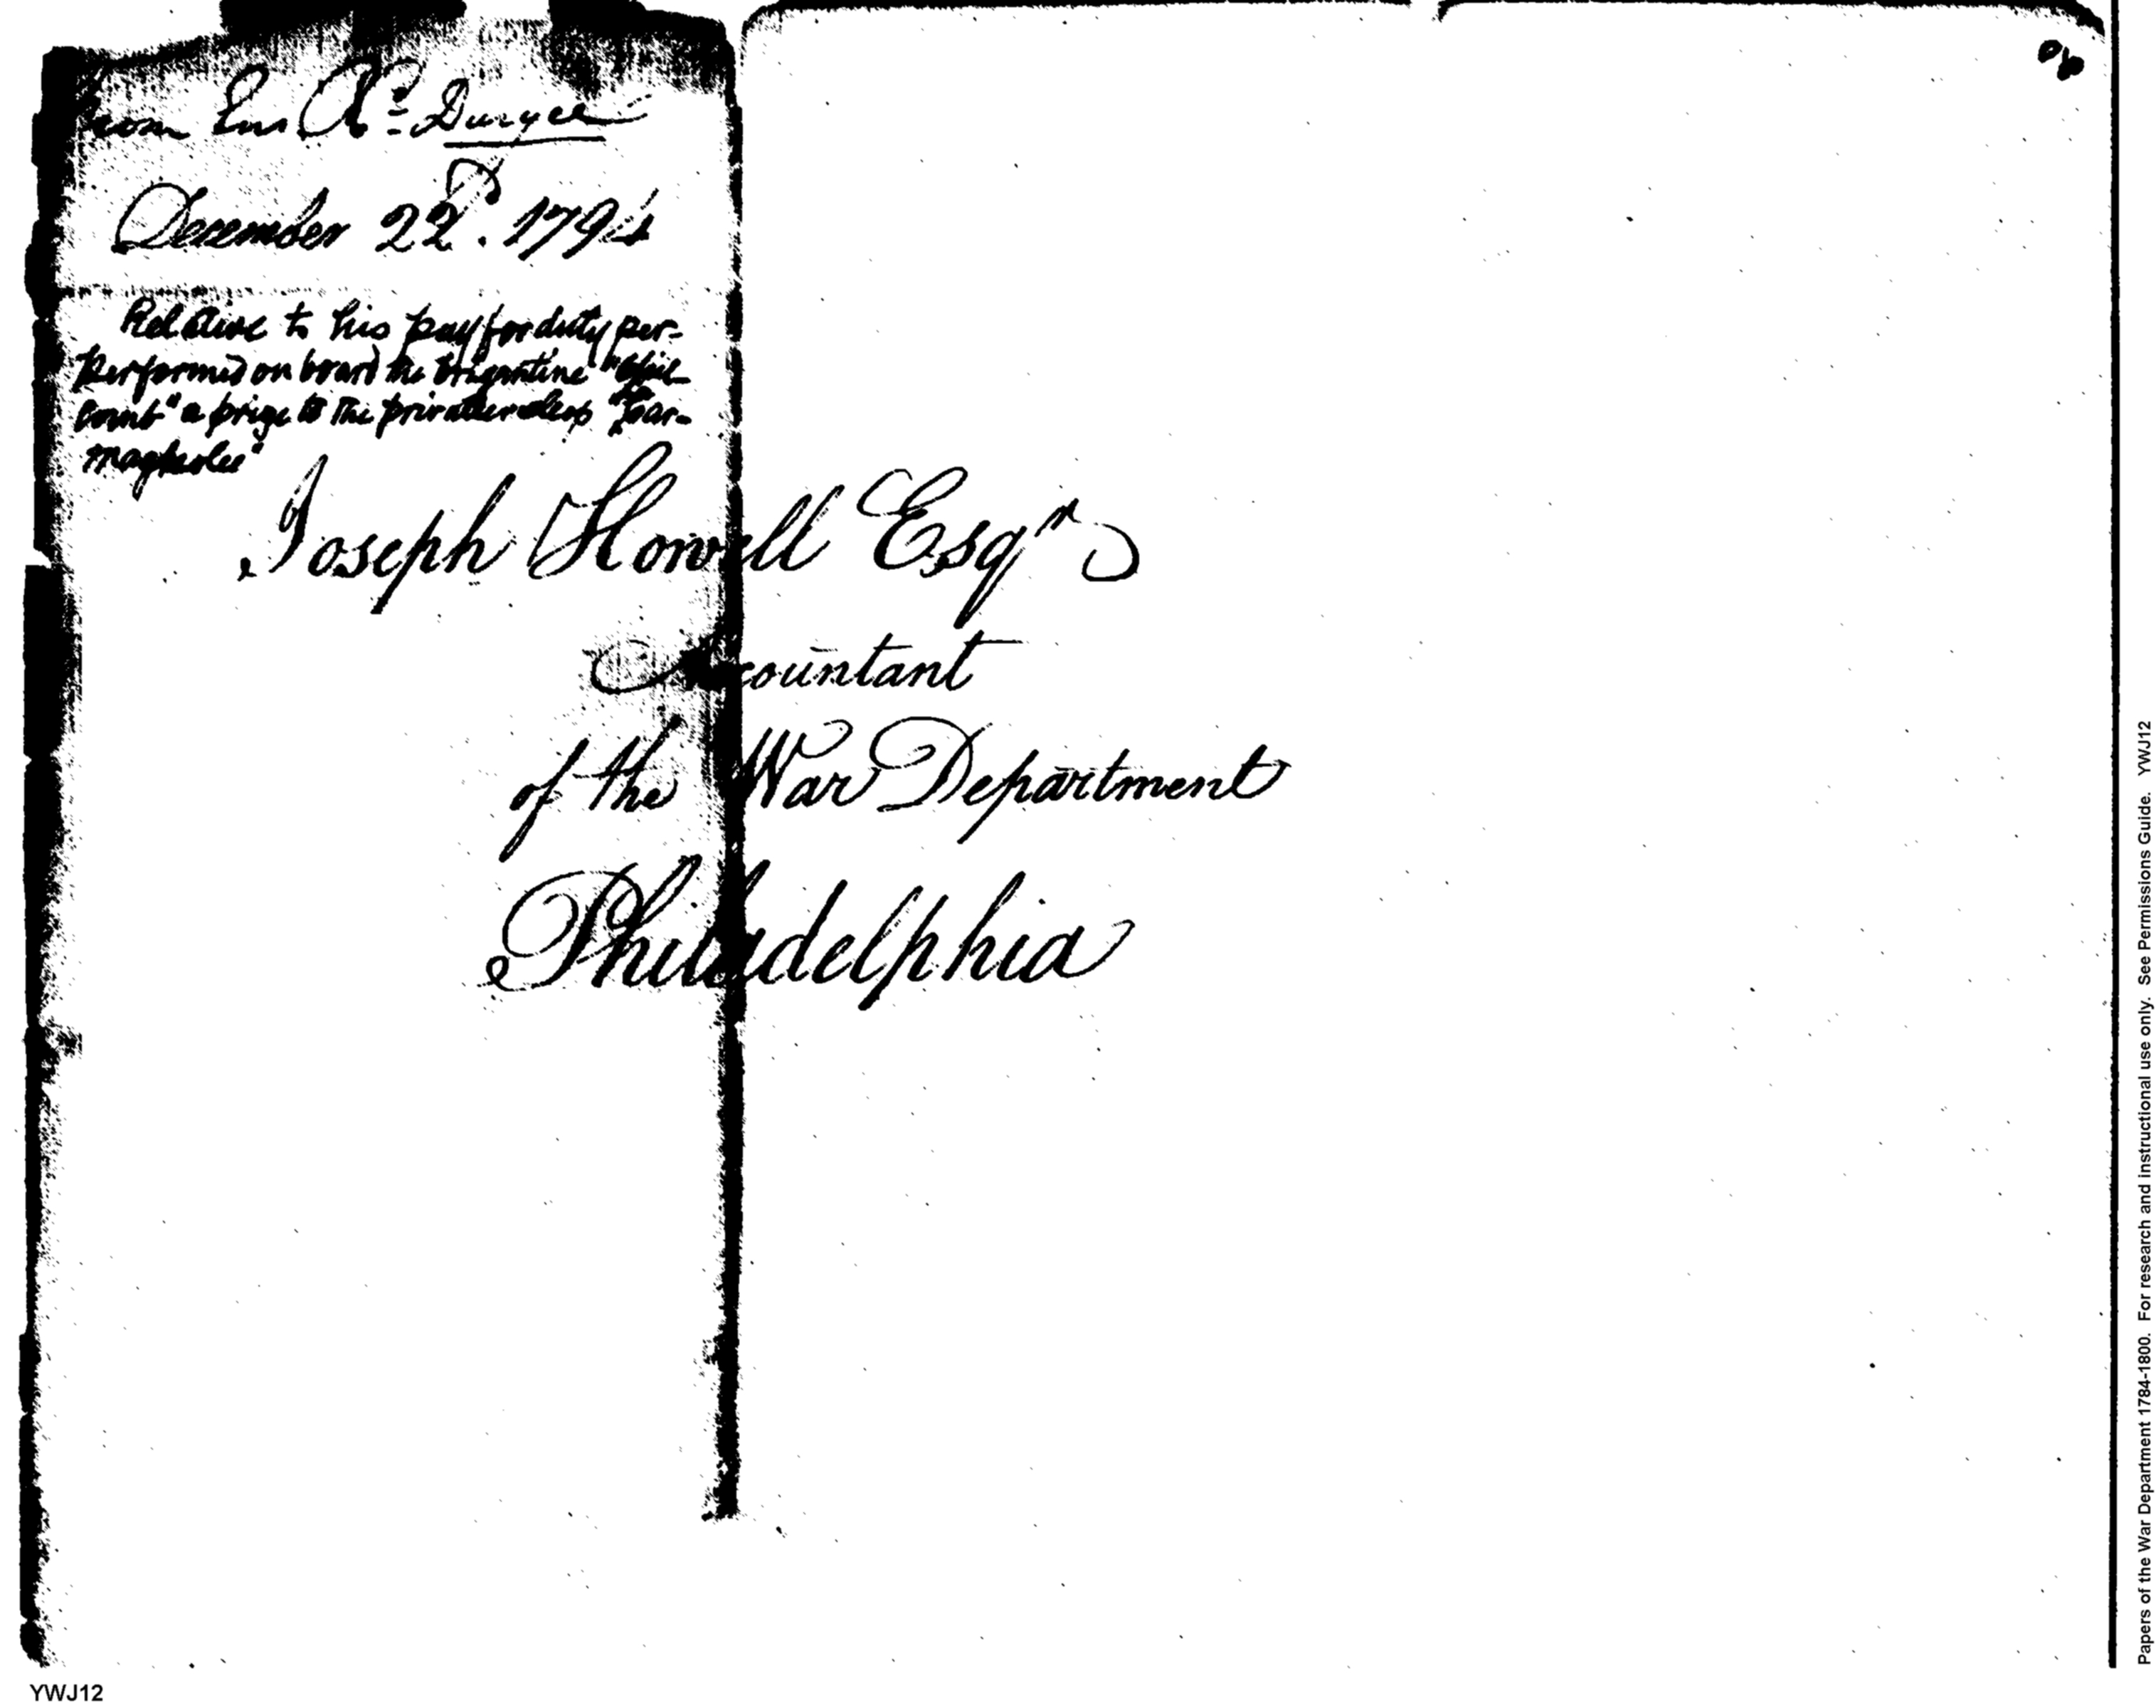 from Ens Rd. Duryee
December 22d. 1794
Relative to his pay for duty per-
performed on board the Brigantine
a prize to the privateer sloop "Car-
magnole"
Joseph Howell Esqr
Accountant
of the War Department
Philadelphia
Papers of the War Department 1784-1800. For research and instructional use only. See Permissions Guide. YWJ12
YWJ12